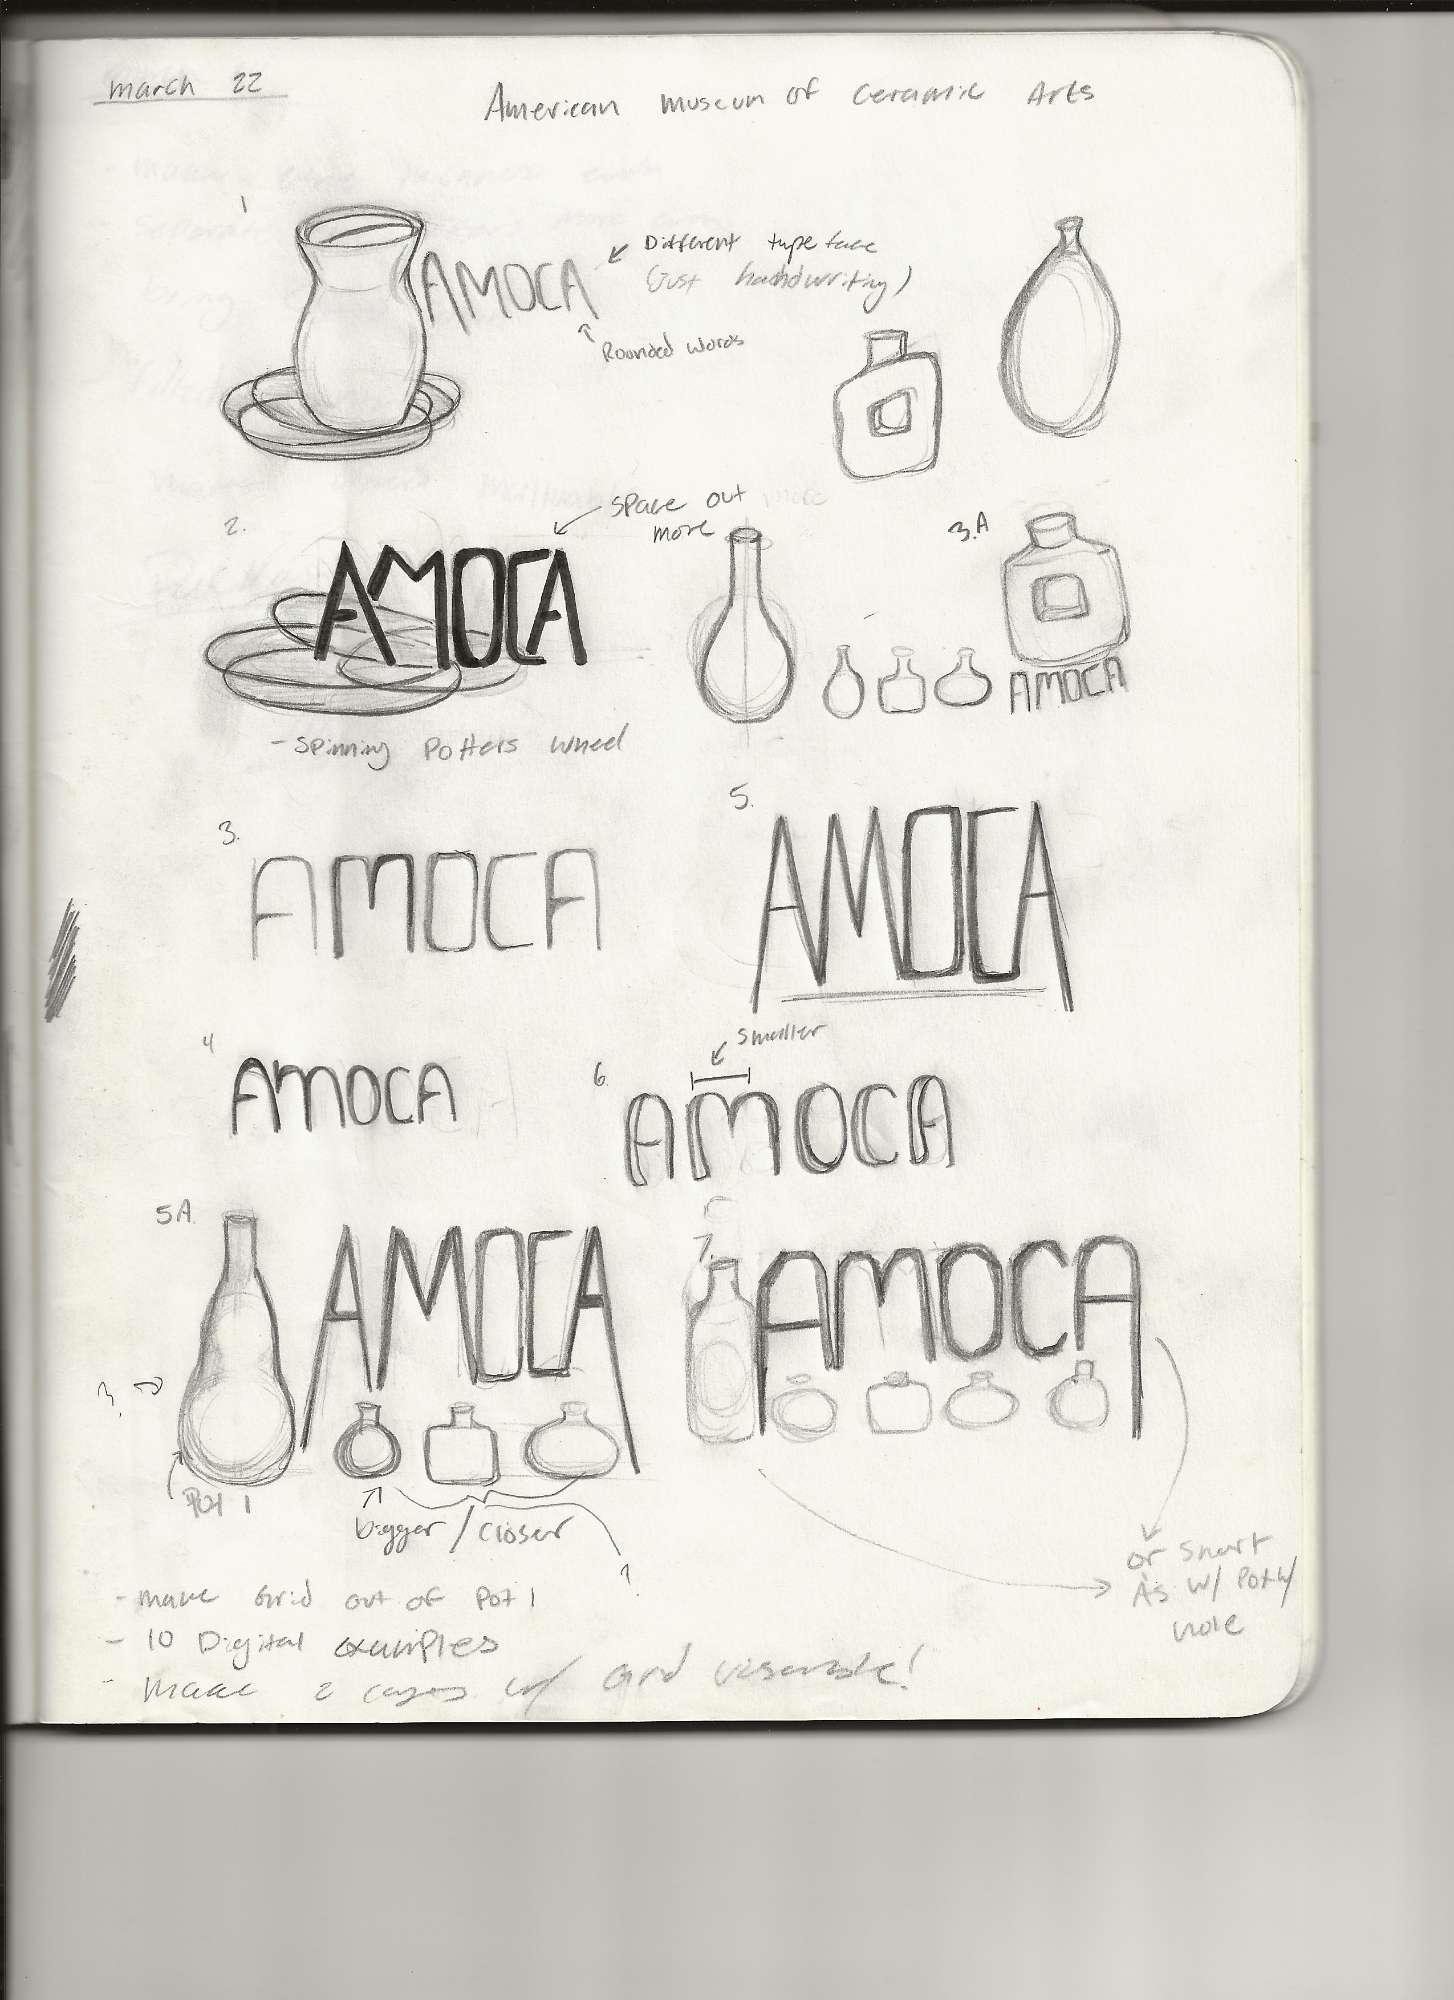 march 22
American museum of ceramic Arts
1
AMOCA
Different typeface
(Just handwriting)
Rounded words
2.
AMOCA
space out
more
- spinning Potters wheel
3.A
AMOCA
3.
AMOCA
5.
AMOCA
4
AMOCA
smaller
6
AMOCA
5A.
AMOCA
Pot 1
bigger / closer
?
7.
AMOCA
or smart
As w/ Pot w/
hole
- make Grid out of Pot 1
- 10 Digital examples
- make 2 w/ Grid